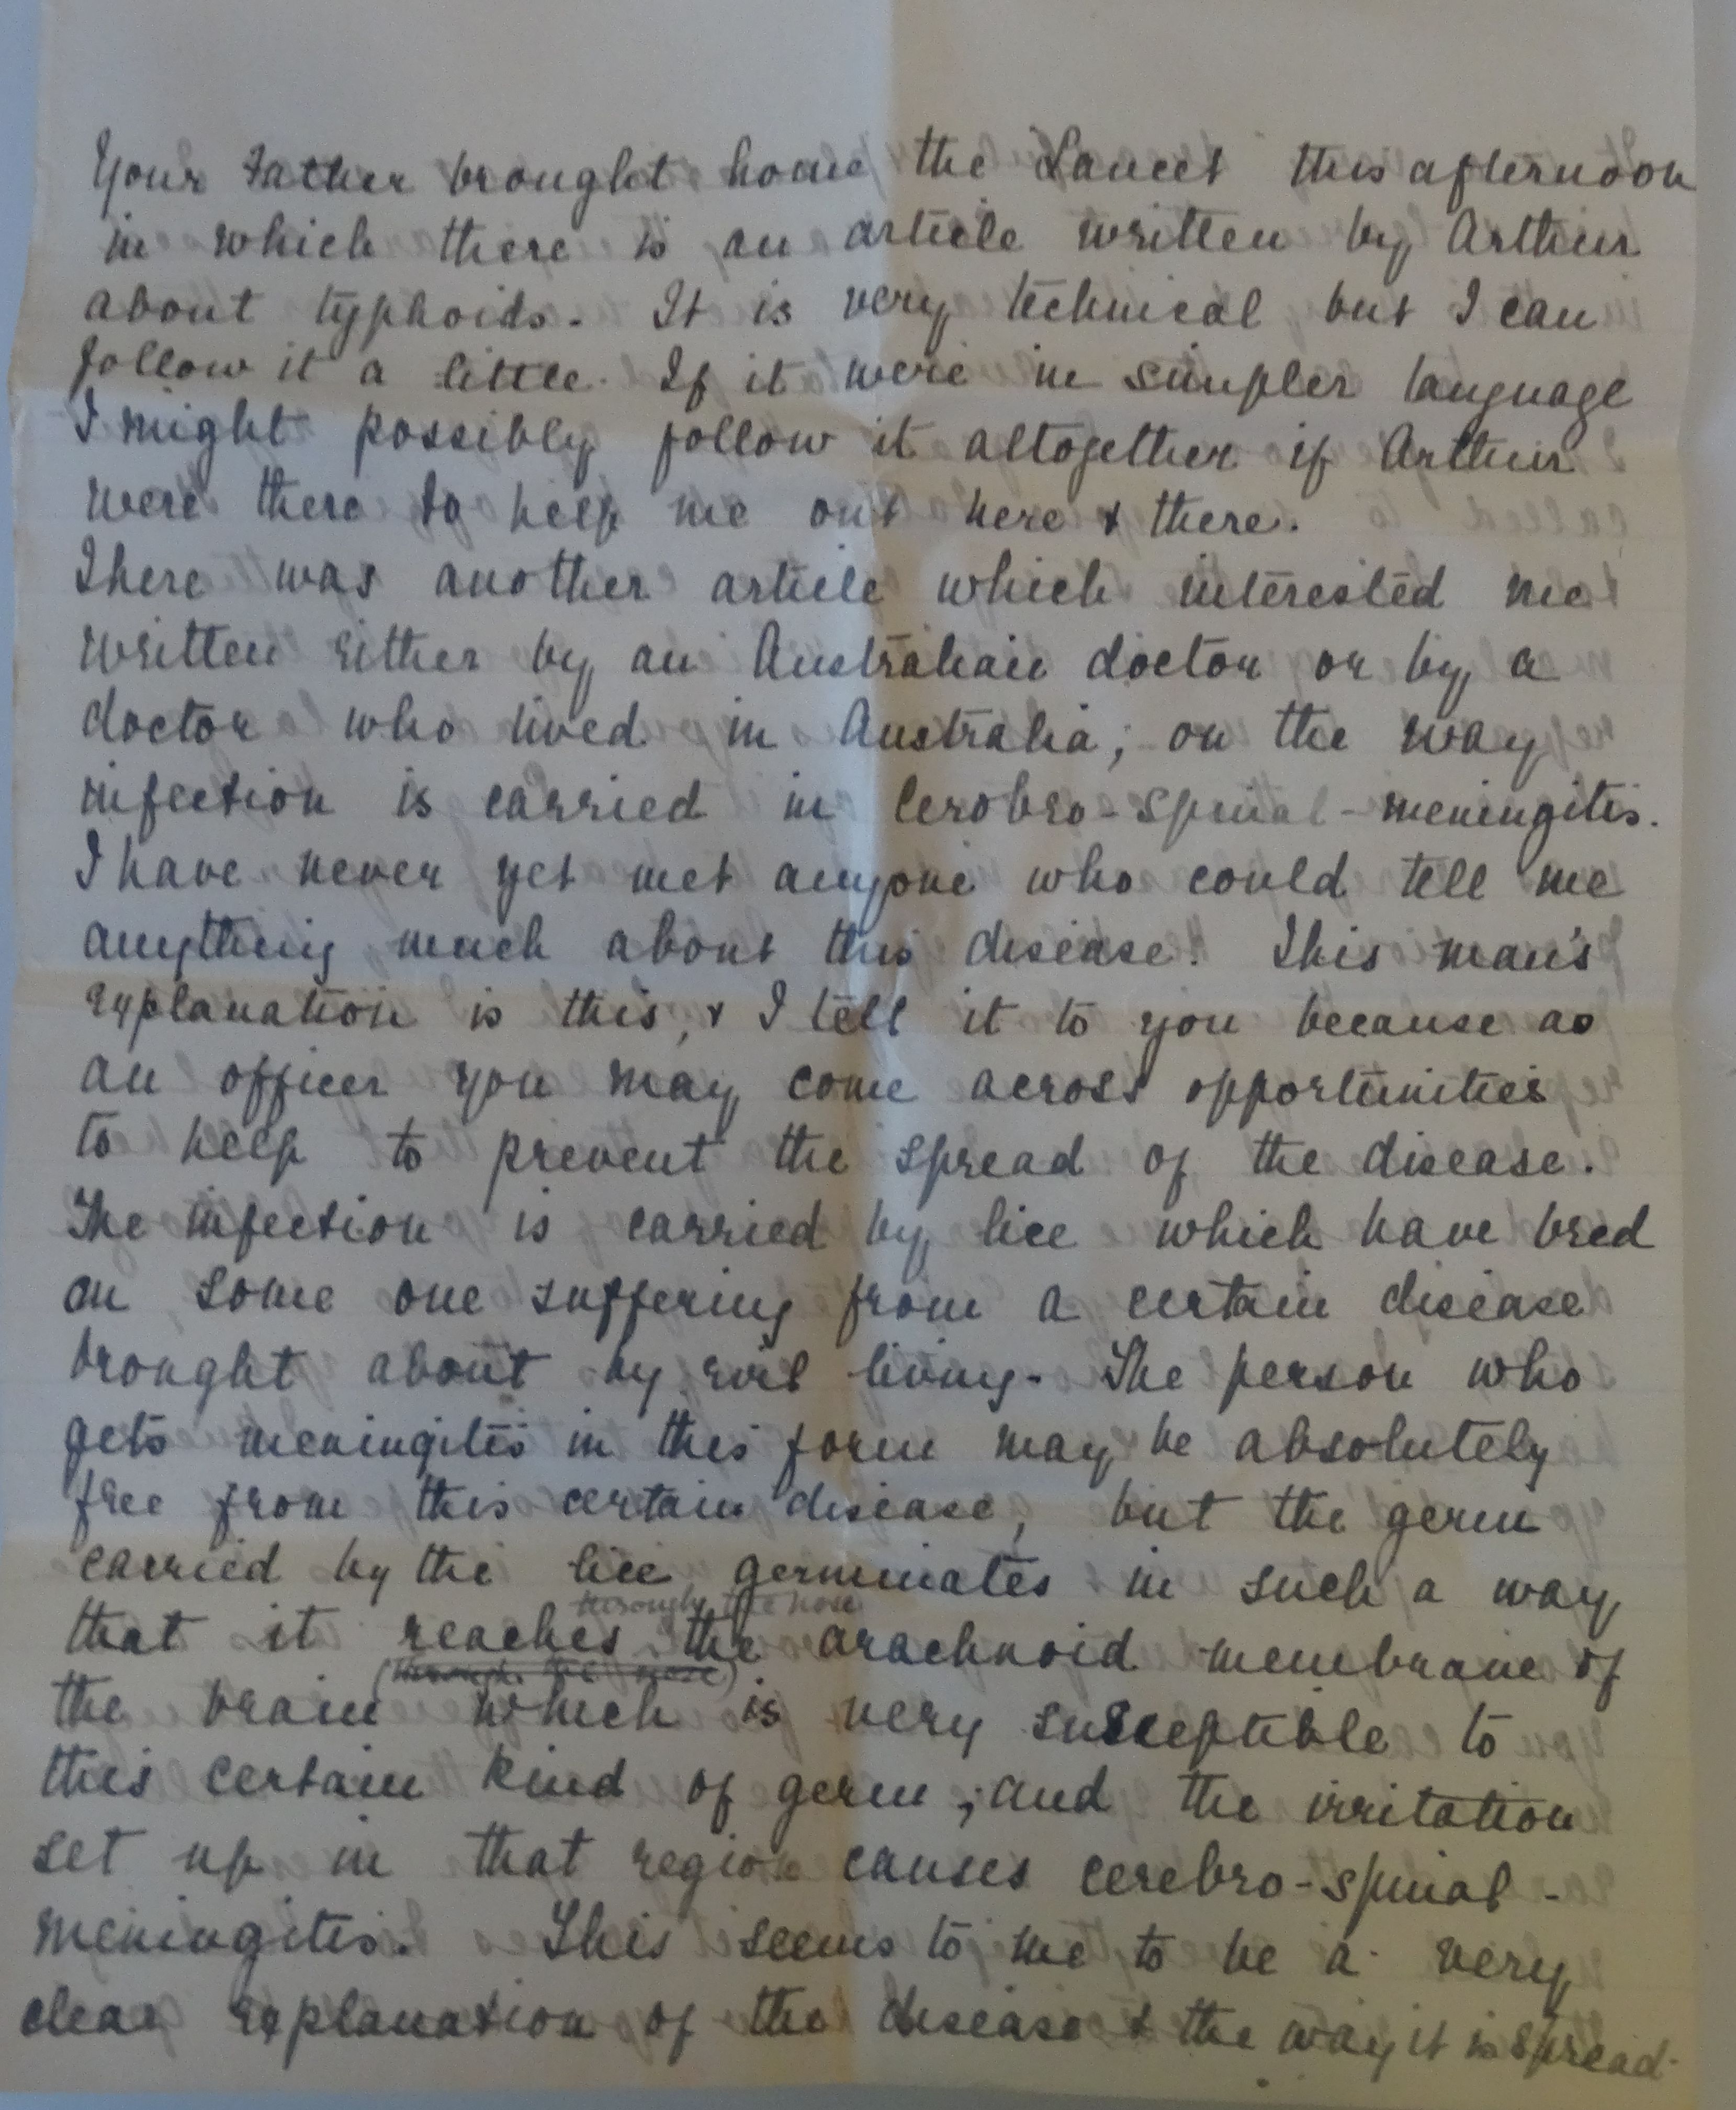 Your Father brought home the Lancet this afternoon
in which there is an article written by Arthur
about typhoids. It is very technical but I can
follow it a little. If it were in simpler language
I might possibly follow it altogether if Arthur
were there to help me out here & there.
There was another article which interested me
written either by an Australian doctor or by a
doctor who lived in Australia; on the way
infection is carried in Cerobro-spinal-meningitis.
I have never yet met anyone who could tell me
anything much about this disease. This man's
explanation is this, & I tell it to you because as
an officer you may come across opportunities
to help to prevent the spread of the disease.
The infection is carried by lice which have bred
on some one suffering from a certain disease
brought about by evil living. The person who
gets meningitis in this form may be absolutely
free from this certain disease, but the germ
carried by the lice germinates in such a way
through the nose
that it reaches the arachnoid membrane of
(through the nose)
the brain which is very susceptible to
this certain kind of germ; and the irritation
set up in that region causes cerebro-spinal-
meningitis. This seems to me to be a very
clear explanation of the disease & the way it is spread.